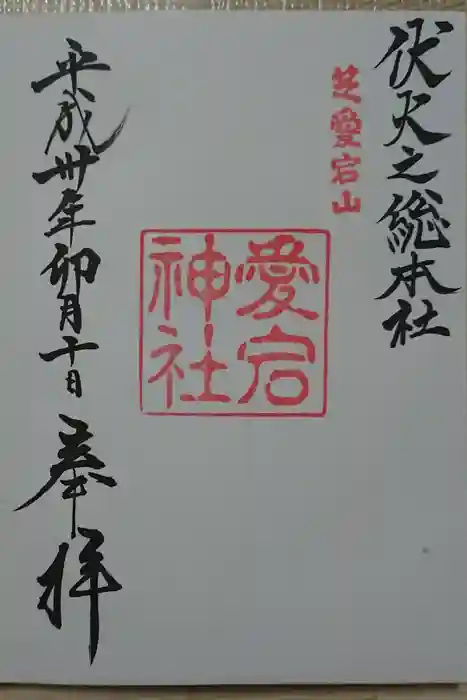 伏火之総本社
芝愛宕山
愛宕
神社
平成卅年卯月十日
奉拝